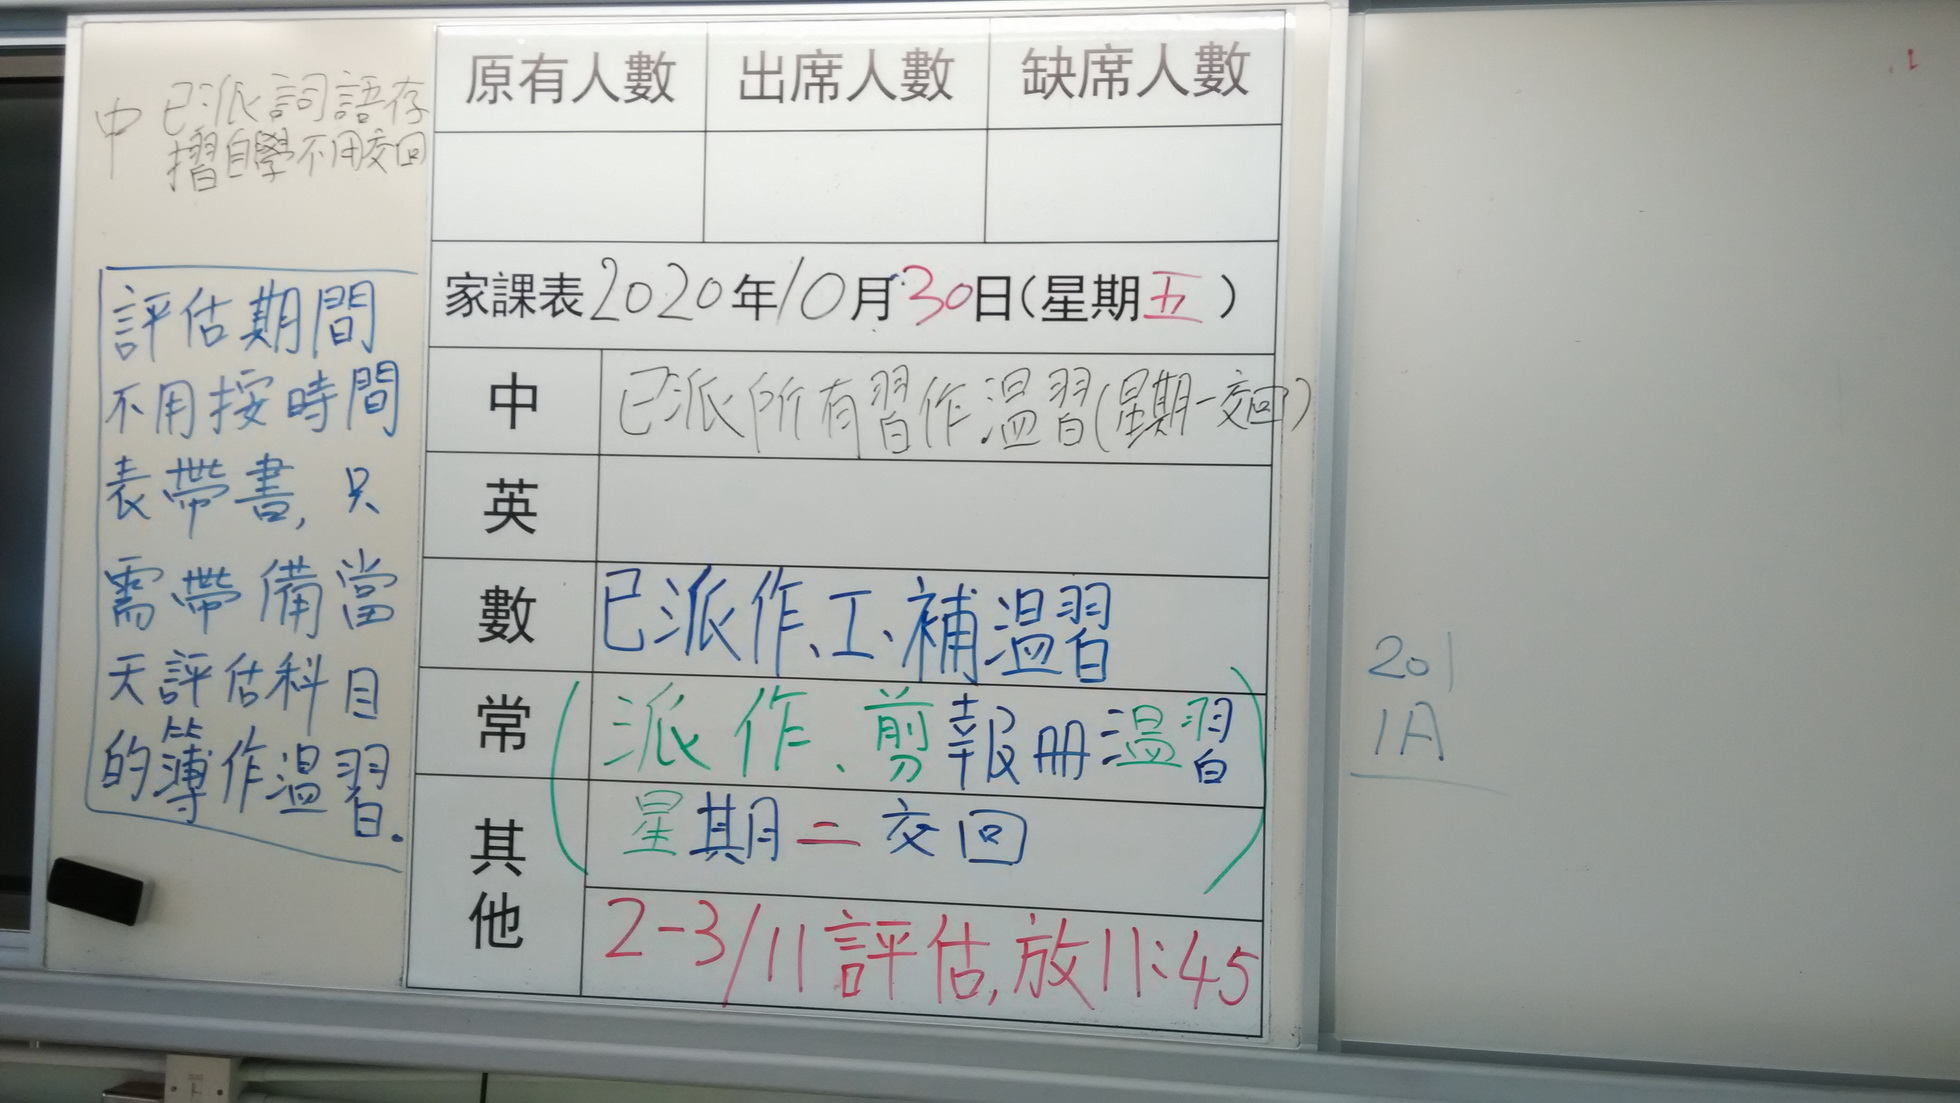 中 已派詞語存
摺自學不用交回
評估期間
不用按時間
表帶書，只
需帶備當
天評估科目
的簿作溫習.
原有人數 出席人數 缺席人數
家課表2020年10月30日(星期五)
中 已派所有習作溫習(星期一交回)
英
數 已派作、工、補溫習
常 (派作、剪報冊溫習
其他 星期二交回)
2-3/11評估,放11:45
201
1A